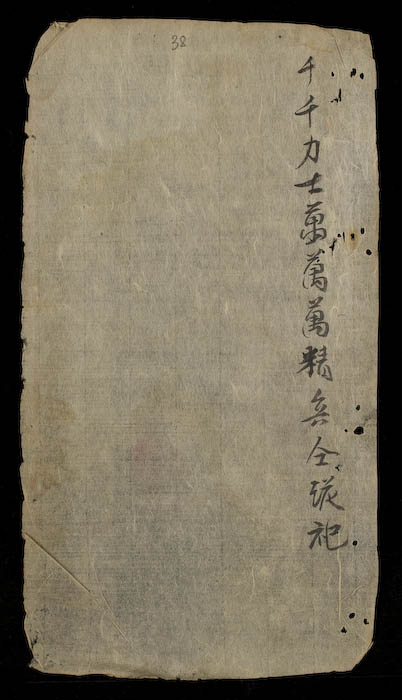 38
千千力士萬萬萬精兵仝從祀